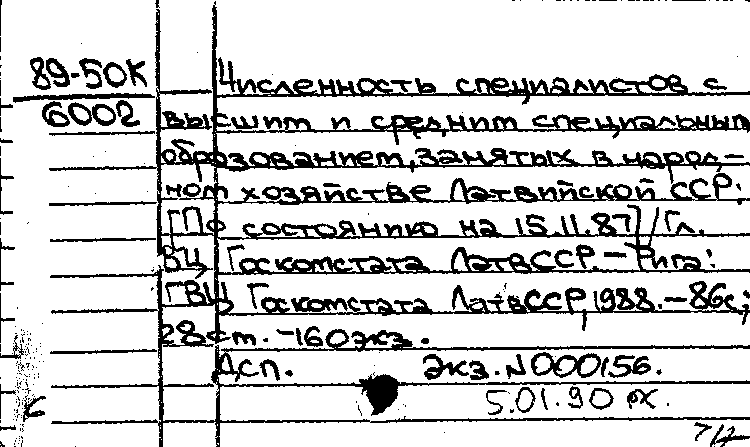 89-50К
6002
Численность специалистов с
высшим и средним специальным
образованием, занятых в народ-
ном хозяйстве Латвийской ССР:
[По состоянию на 15.11.87]/Гл.
ВЦ Госкомстата ЛатвССР.-Рига:
ГВЦ Госкомстата ЛатвССР, 1988.-86с.;
28см.-160экз.
Дсп. Экз.N000156.
5.01.90